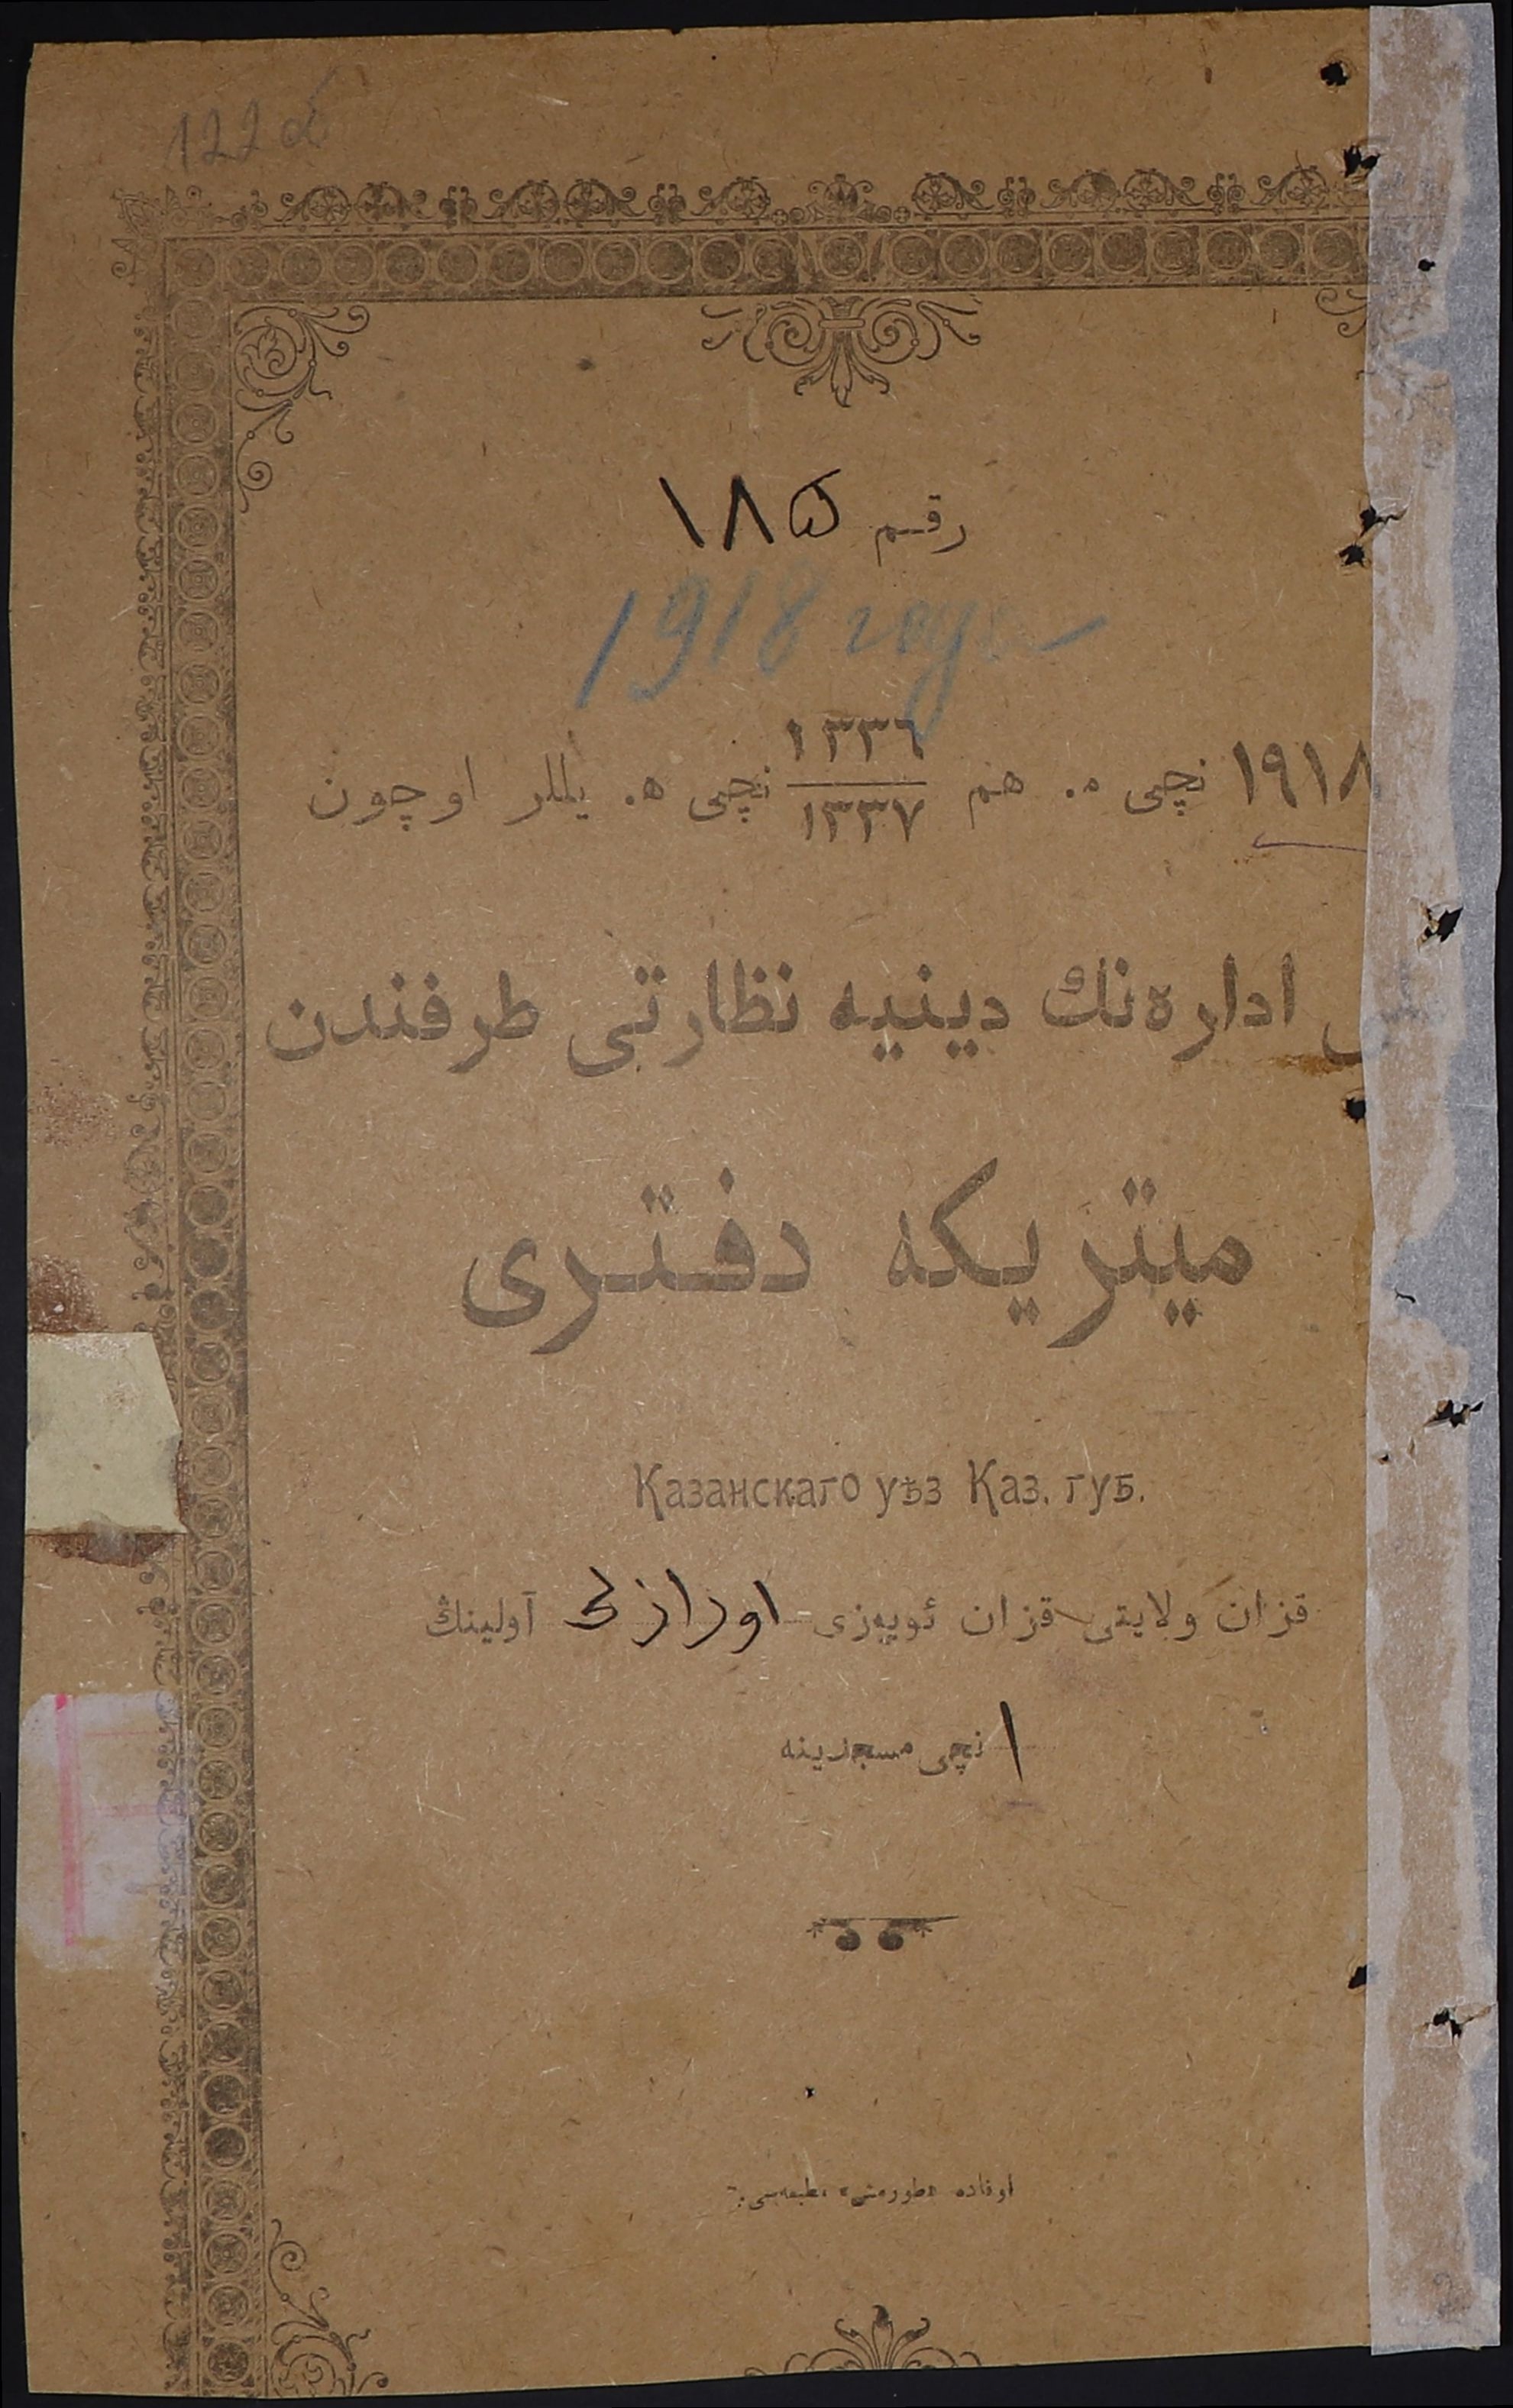 122
رقم ۱۸۵
1918 года
۱۹۱۸ نچی ه. هم ۱۳۳٦ / ۱۳۳۷ نچی ه. یللر اوچون
اداره‌نڭ دینیه نظارتی طرفندن
میتریکه دفتری
Казанскаго уѣз Каз. губ.
قزان ولایتی قزان ئویه‌زی اورازلی آولینڭ
۱ نچی مسجدینه
اوفاده «طورمش» مطبعه‌سی.